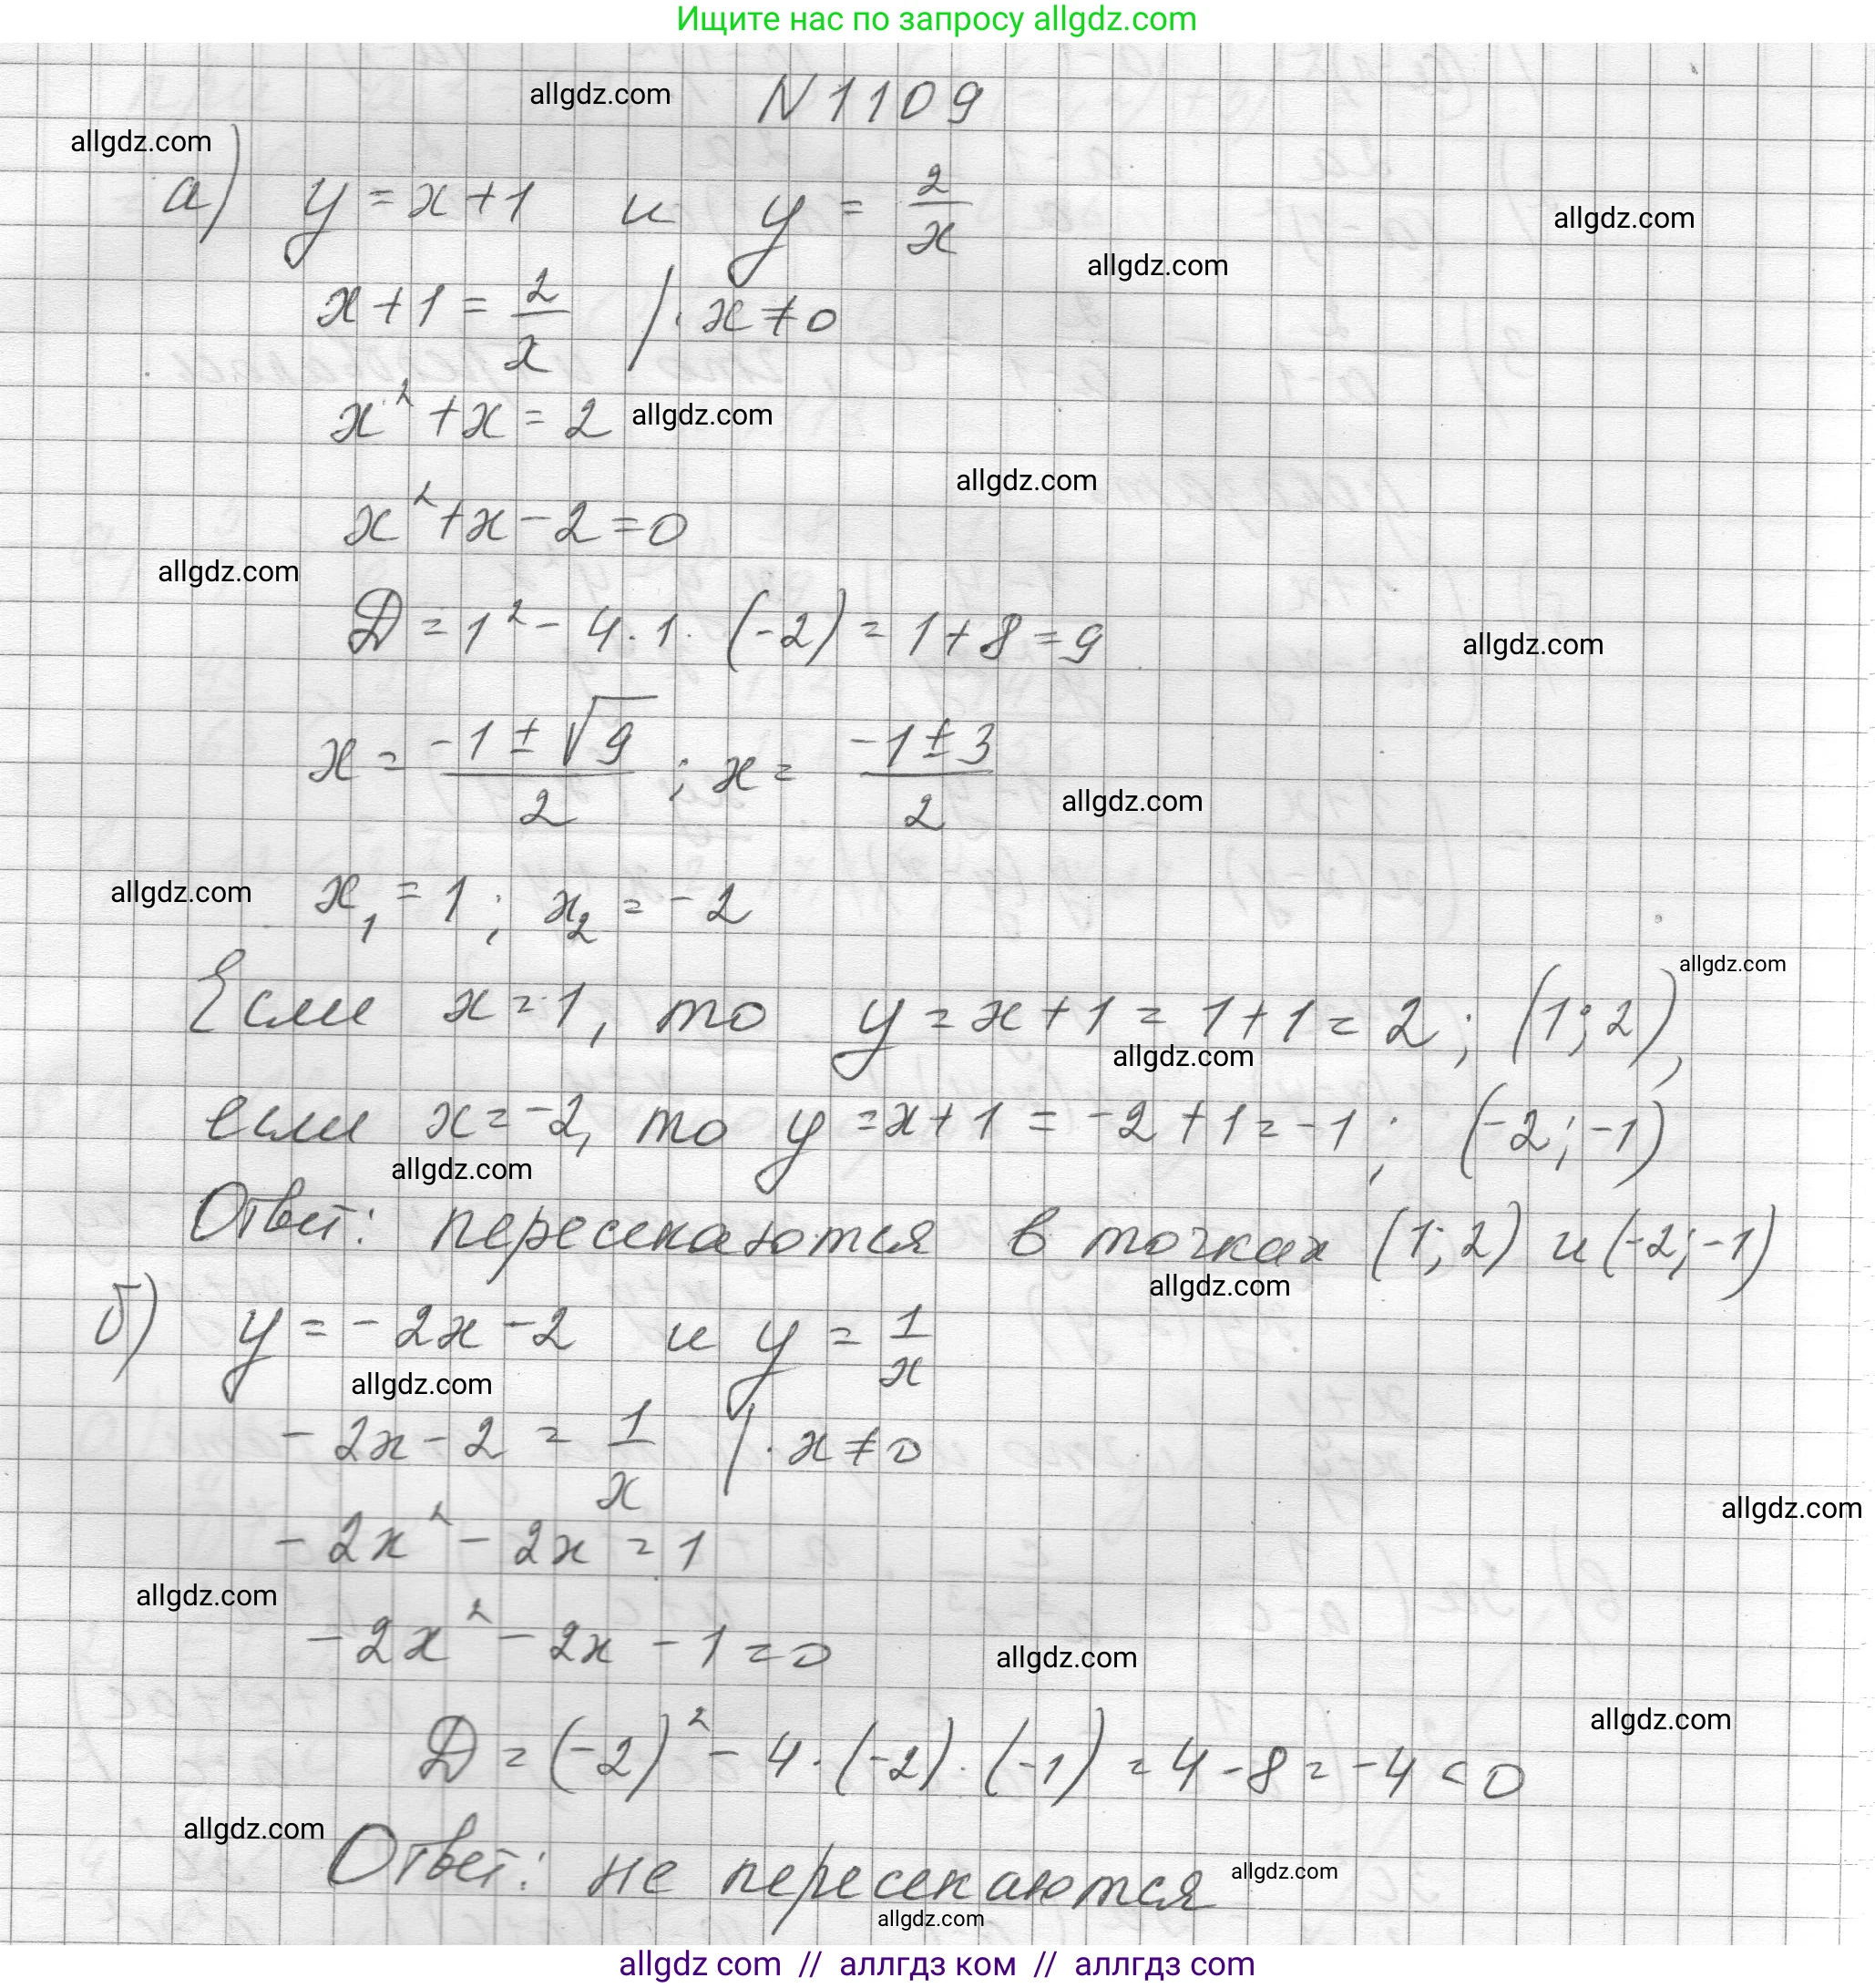 Ищите нас по запросу allgdz.com
allgdz.com N 1109
allgdz.com
а) y = x + 1 и y = 2/x
allgdz.com
allgdz.com
x + 1 = 2/x | · x ≠ 0
x² + x = 2 allgdz.com
allgdz.com
x² + x - 2 = 0
allgdz.com
D = 1² - 4 · 1 · (-2) = 1 + 8 = 9
allgdz.com
x = (-1 ± √9)/2 ; x = (-1 ± 3)/2
allgdz.com
allgdz.com x₁ = 1 ; x₂ = -2
allgdz.com
Если x = 1, то y = x + 1 = 1 + 1 = 2 ; (1; 2),
allgdz.com
если x = -2, то y = x + 1 = -2 + 1 = -1 ; (-2; -1)
allgdz.com
Ответ: пересекаются в точках (1; 2) и (-2; -1)
allgdz.com
б) y = -2x - 2 и y = 1/x
allgdz.com
-2x - 2 = 1/x | · x ≠ 0
allgdz.com
-2x² - 2x = 1
allgdz.com
-2x² - 2x - 1 = 0
allgdz.com
allgdz.com
D = (-2)² - 4 · (-2) · (-1) = 4 - 8 = -4 < 0
allgdz.com
Ответ: не пересекаются allgdz.com
allgdz.com
allgdz com // аллгдз ком // аллгдз com